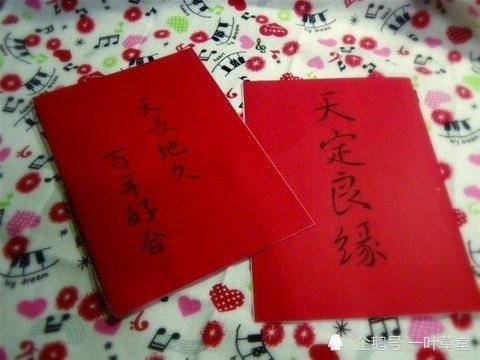 天长地久
百年好合
天定良缘
big dream
big dream
企鹅号 一叶草堂